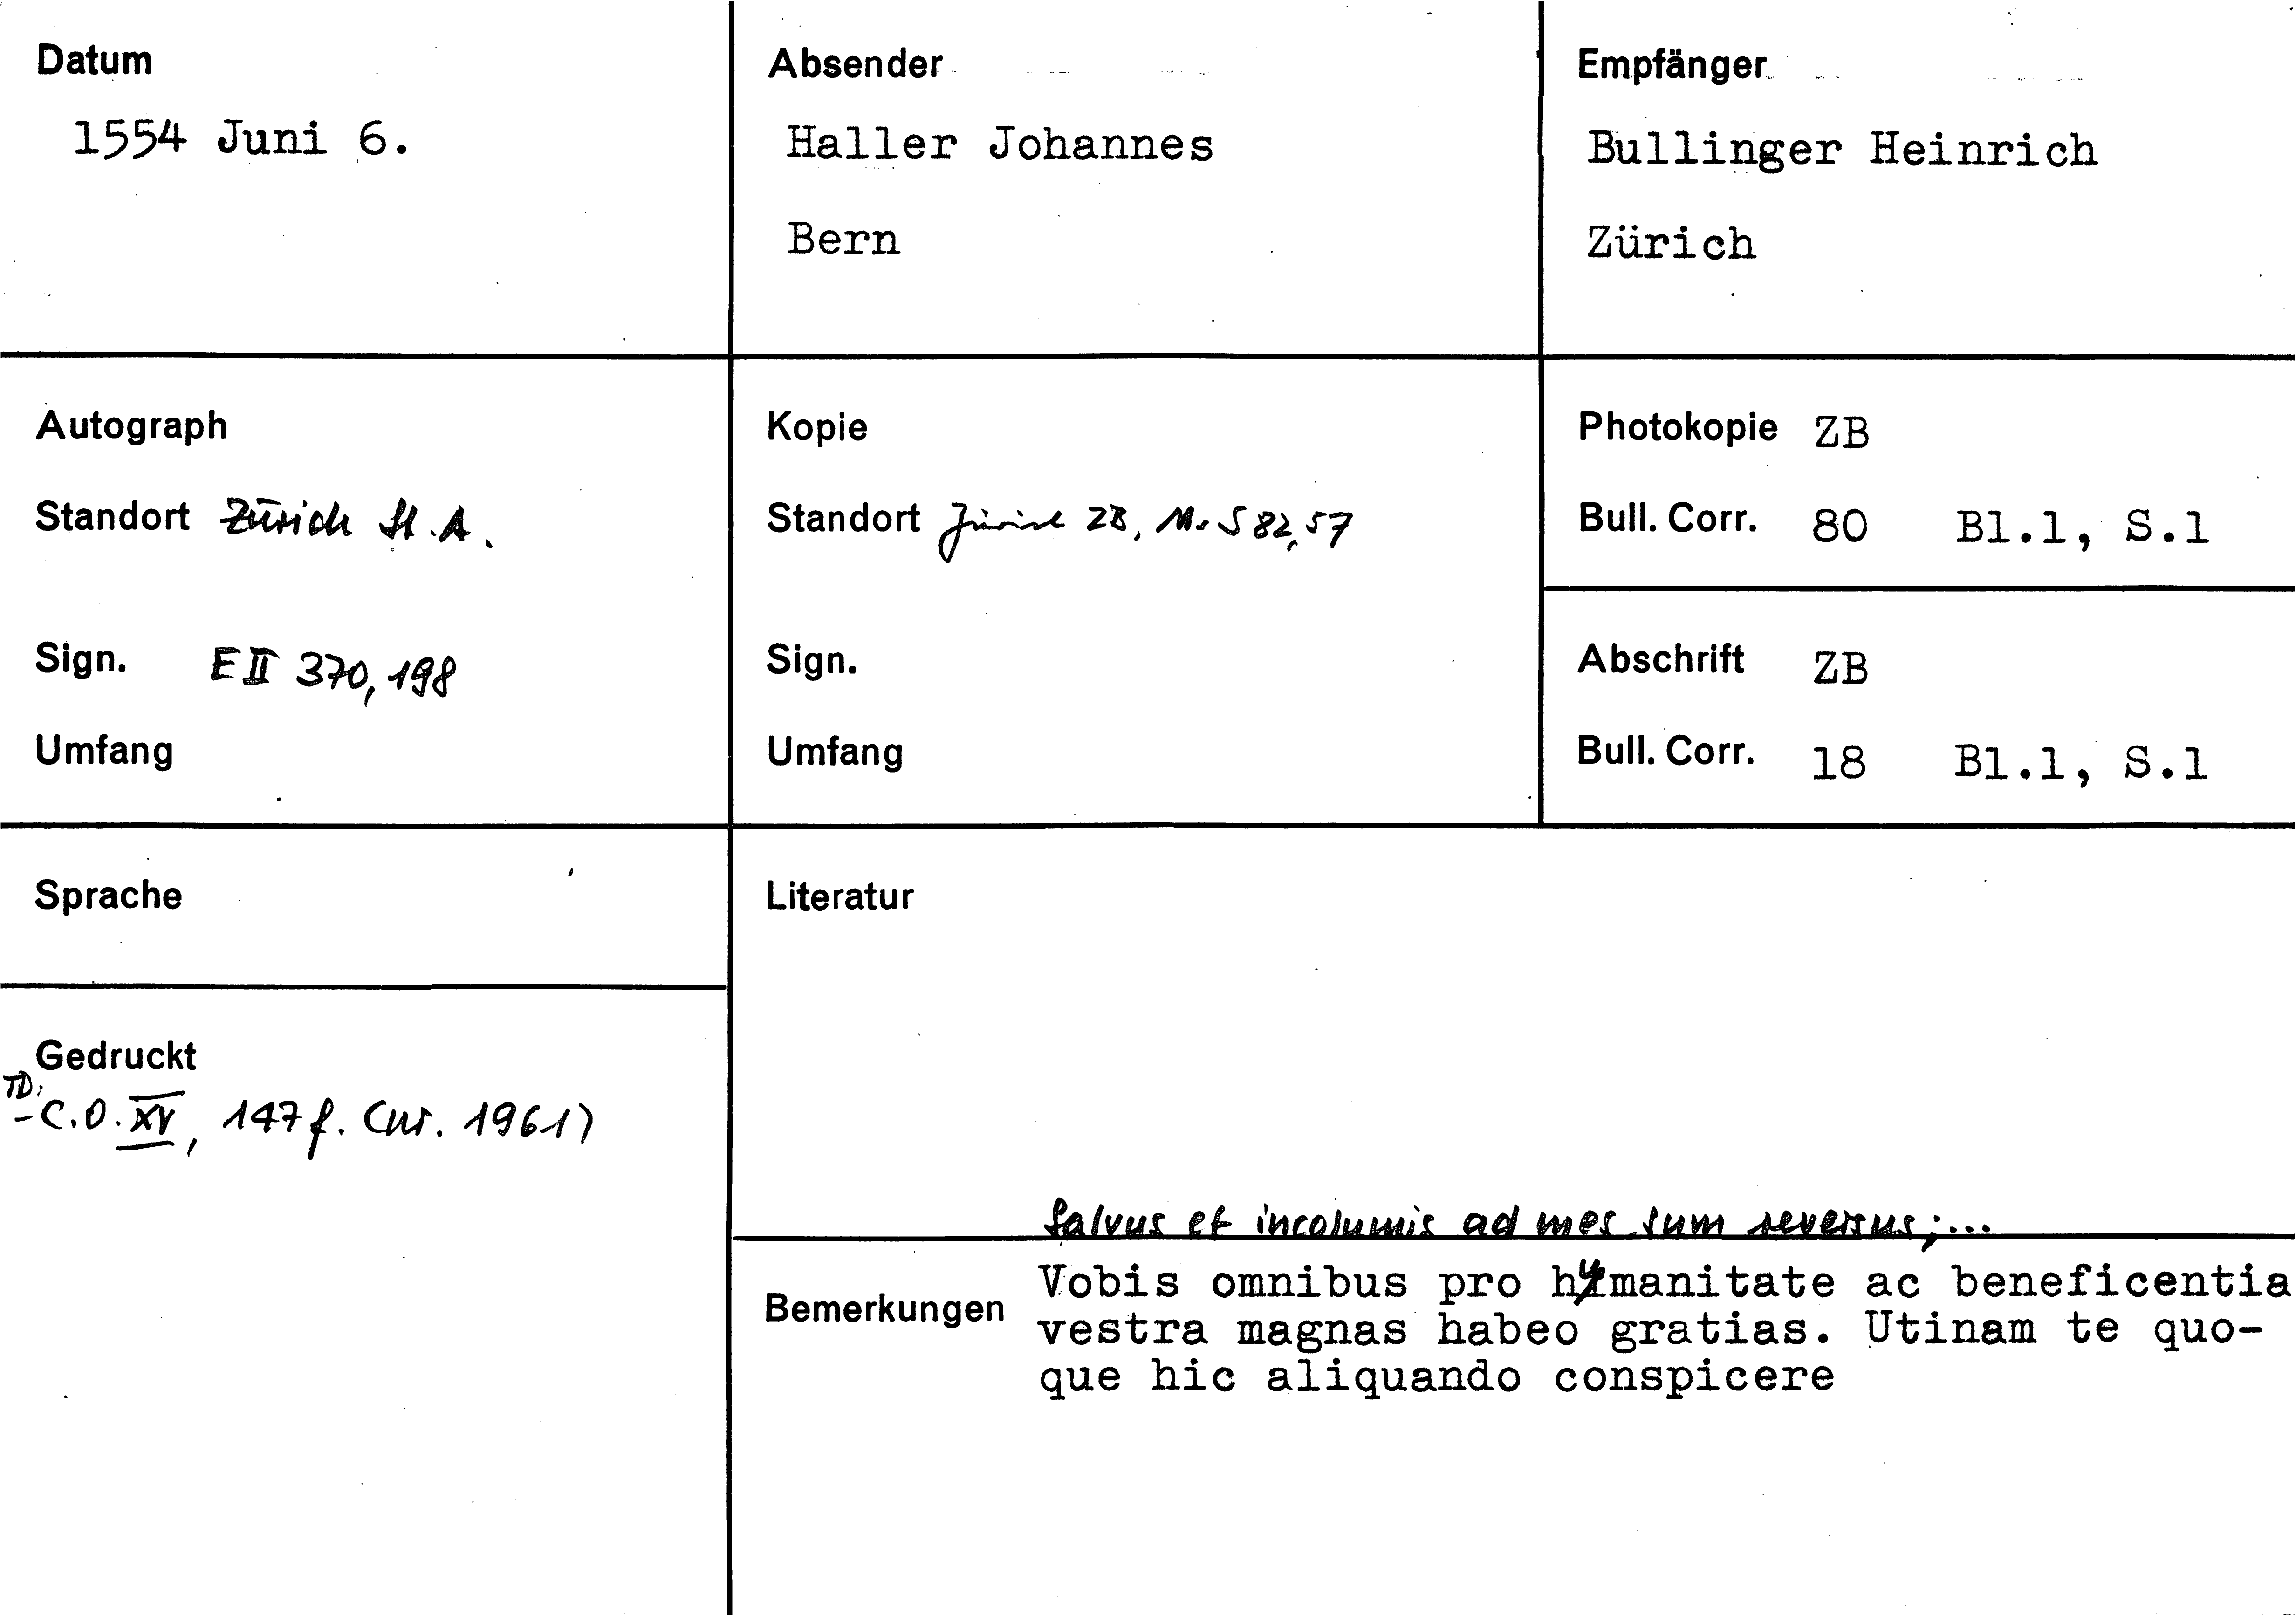 Datum
1554 Juni 6.
Absender
Haller Johannes
Bern
Empfänger
Bullinger Heinrich
Zürich
Autograph
Standort Zürich St. A.
Sign. E II 370, 198
Umfang
Kopie
Standort Zürich ZB, Ms S 82, 57
Sign.
Umfang
Photokopie ZB
Bull. Corr. 80 Bl.1, S.1
Abschrift ZB
Bull. Corr. 18 Bl.1, S.1
Sprache
Gedruckt
TD:
- C.O. XV, 147 f. (nr. 1961)
Literatur
Salvus et incolumis ad meos sum reversus; ...
Bemerkungen
Vobis omnibus pro humanitate ac beneficentia
vestra magnas habeo gratias. Utinam te quo-
que hic aliquando conspicere